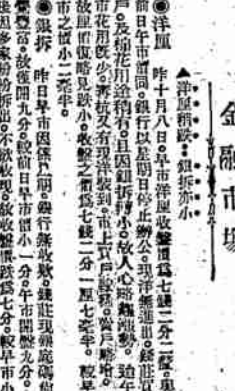 金融市塲
▲洋厘稍跌‥銀拆亦小
◉洋厘
昨十月八日。早市洋厘收盤價爲七錢二分二厘。
前日午市價同。銀行以星期日停止辦公。現洋無進出。錢莊
戶。及棉花用途稍有。且因銀拆轉小。故人心略
市花用旣少。蘇杭又有現洋裝到。市上買戶
故厘價復略見跌小。收盤之價爲七錢二分一厘七毫半。較早
市之價小二毫半。
◉銀拆
昨日早市因係戶期。銀行無收欵。錢莊現銀
豐富。故僅開九分。較前日早市價小一分。午市開盤九分。
後因多家紛紛拆出。不欲收現。故收盤價跌爲七分。較早市小